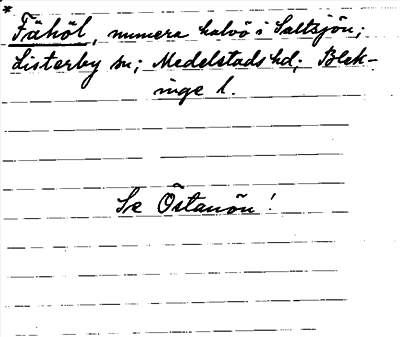 * Fähöl, numera halvö i Saltsjön;
Listerby sn; Medelstads hd; Blek-
inge l.
Se Östanön!